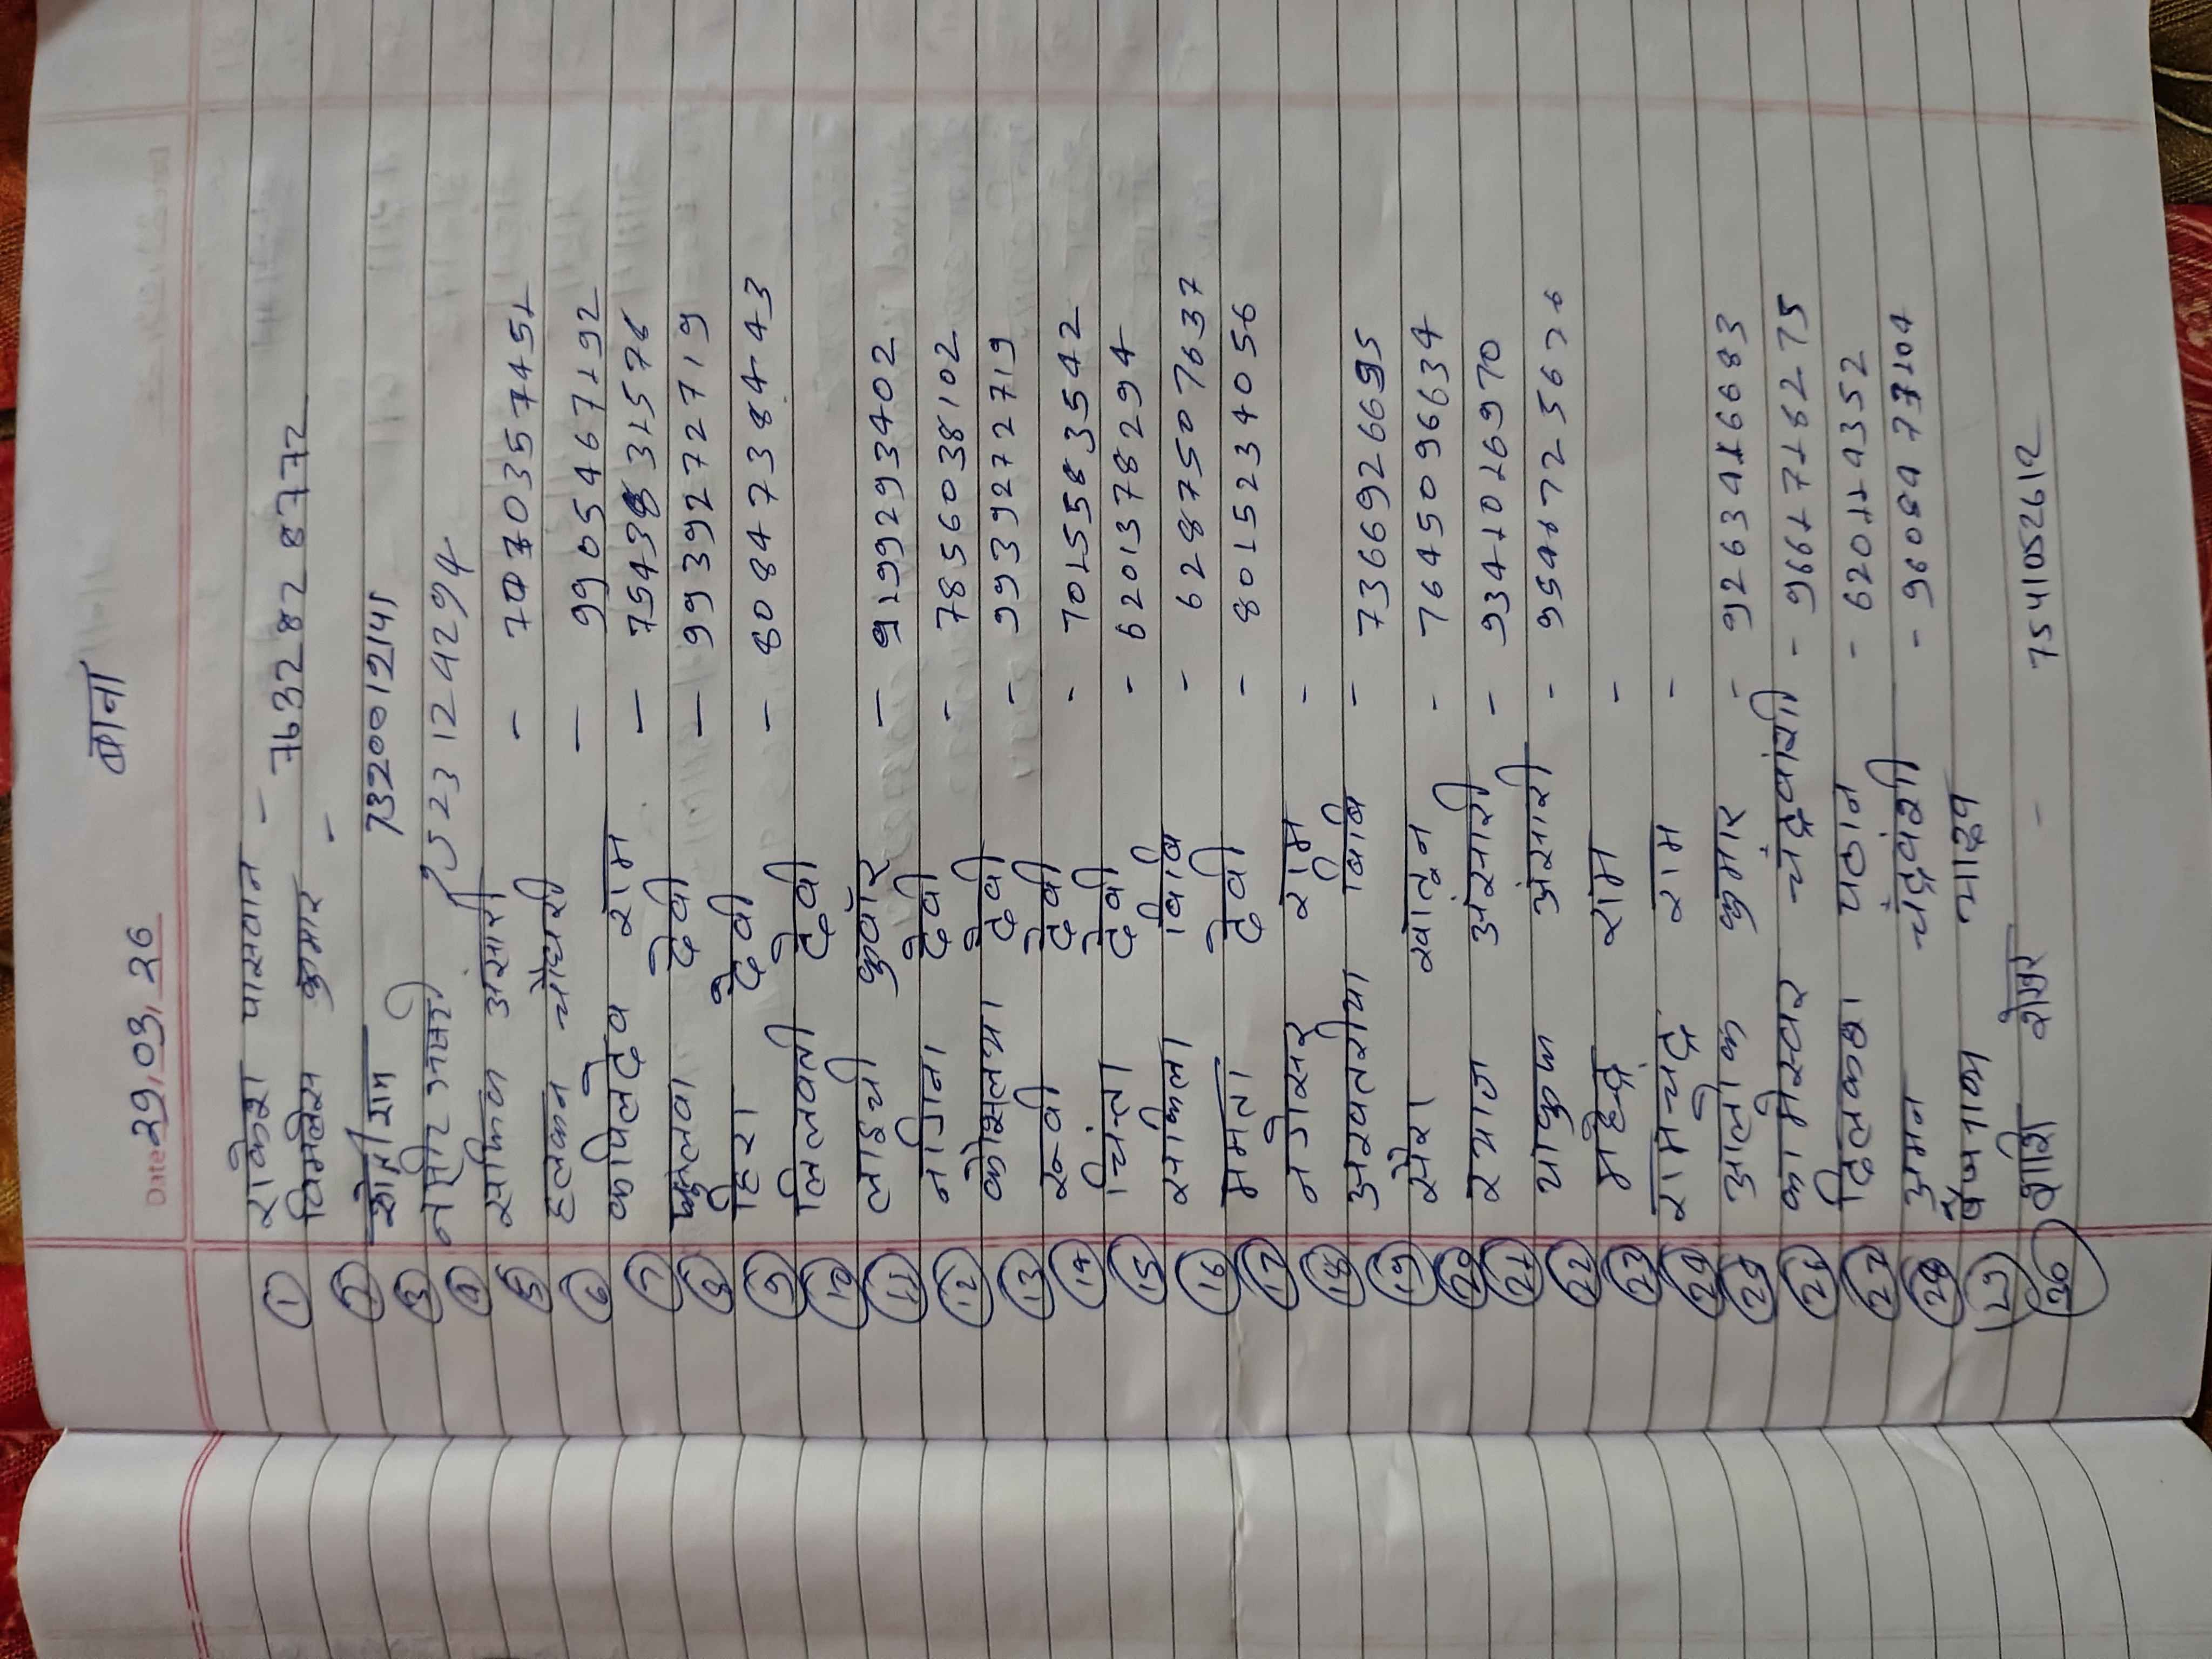 खाना
Date 29.03.26
1 राकेश पासवान - 7632 87 8772
2 विमलेस कुमार -
3 राम 7320012141
4 नसीर अंसारी 9523124294
5 सफिक अंसारी - 7070357451
6 हलकन चौधरी - 9905467192
7 कपिलदेव राम - 7543831576
8 फुलवा देवी - 9939272719
9 हिरा देवी - 8084738443
10 लिलवती देवी
11 लाडची कुवॉर - 9199293402
12 नगिना देवी - 7856038102
13 कोसलया देवी - 9939272719
14 रूबी देवी - 7015583542
15 चिंता देवी - 6201378294
16 सकिला बिबि - 6287507637
17 ममता देवी - 8015234056
18 नगेसर राम -
19 असवतरीया बिबि - 7366926695
20 सेरा खातुन - 7645096634
21 रयाज अंसारी - 9341016970
22 याकुफ अंसारी -
23 महेंद्र राम -
24 रामचंद्र राम -
25 आलोक कुमार -
26 कामेस्वर चंद्रवंशी - 9661718275
27 दिलकश पठान - 620114352
28 अमन चंद्रवंशी - 9608477204
29 बैजनाथ यादव
30 शशि शेखर - 7541052612